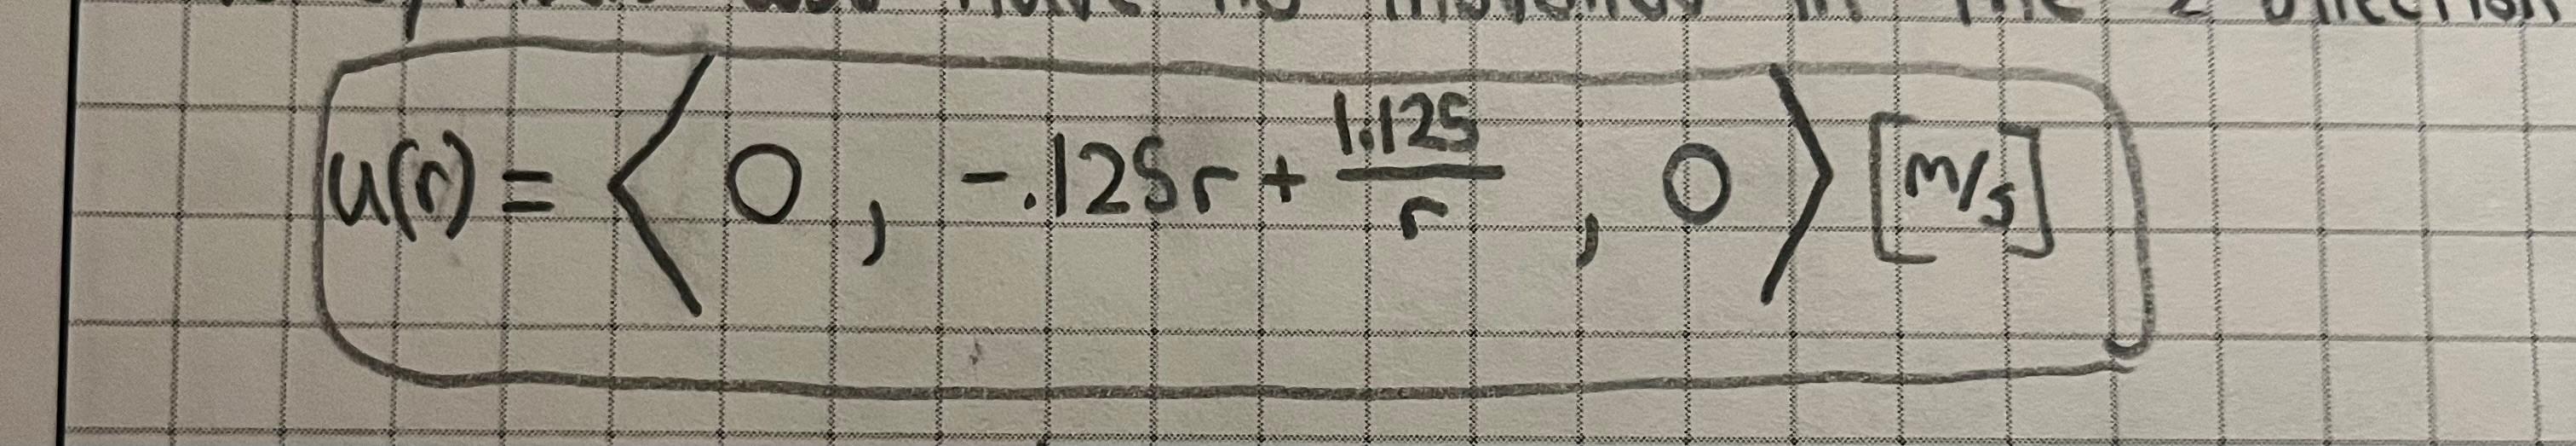 have no in the z direction
u(r) = ⟨ 0 , -.125r + 1.125/r , 0 ⟩ [m/s]